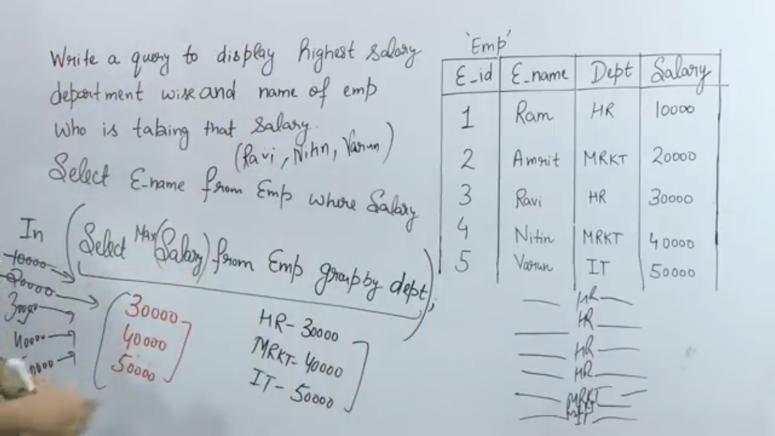 Write a query to display highest salary
department wise and name of emp
who is taking that salary.
(Ravi, Nitin, Varun)
Select E-name from Emp where Salary
In (Select Max(Salary) from Emp group by dept);
10000
20000
30000
40000
30000
40000
50000
HR- 30000
MRKT- 40000
IT- 50000
'Emp'
E_id E_name Dept Salary
1 Ram HR 10000
2 Amrit MRKT 20000
3 Ravi HR 30000
4 Nitin MRKT 40000
5 Varun IT 50000
HR
HR
HR
HR
MRKT
IT